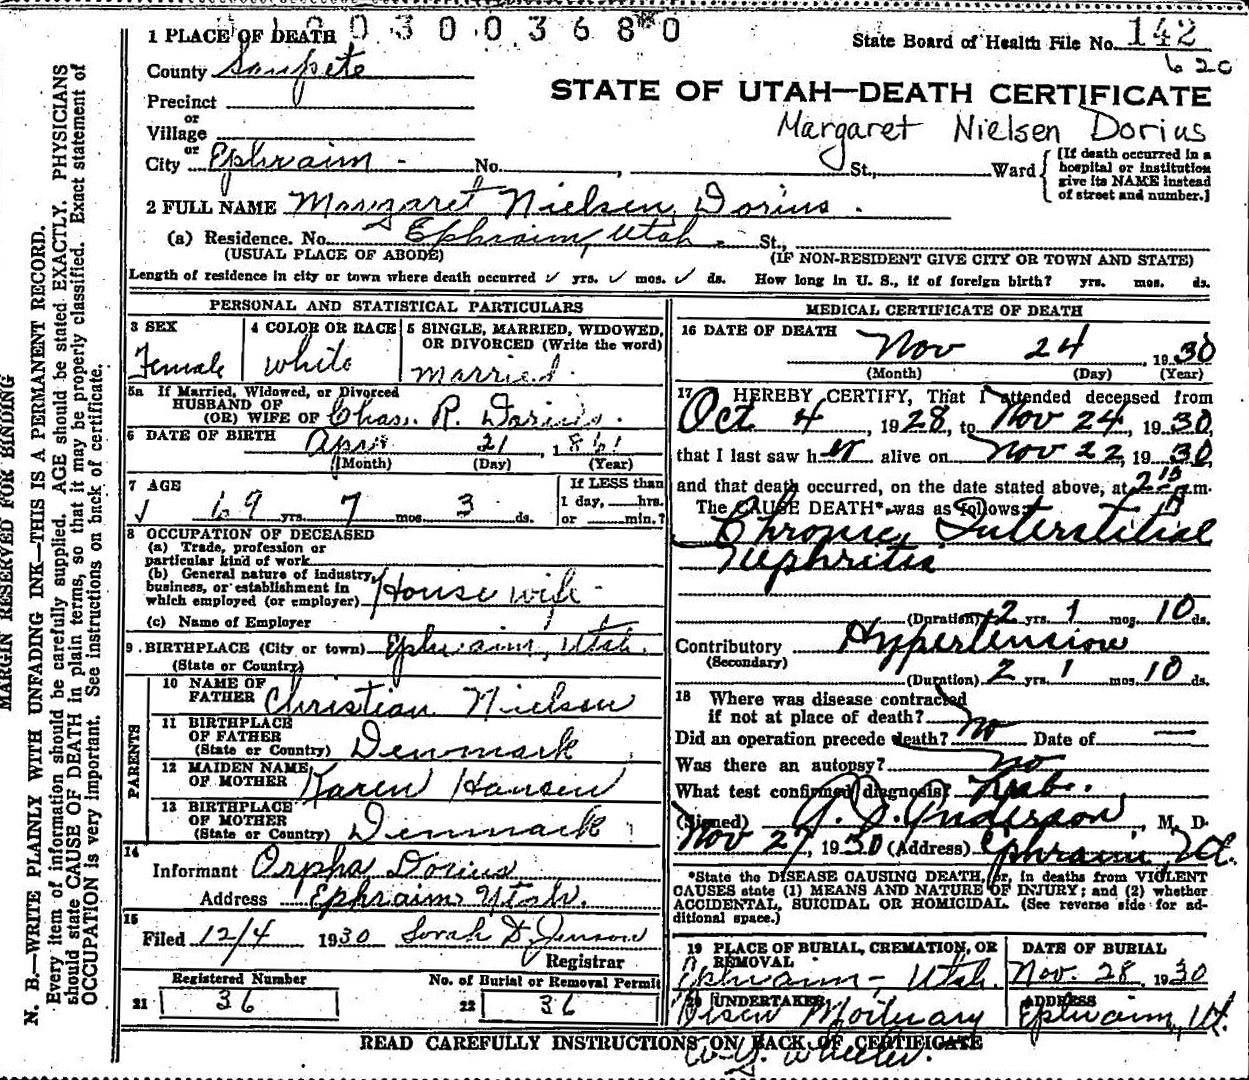 0 3 0 0 3 6 8 0
1 PLACE OF DEATH
State Board of Health File No. 142
620
County Sanpete
STATE OF UTAH—DEATH CERTIFICATE
Precinct
or
Village
Margaret Nielsen Dorius
or
City Ephraim - No. , St., Ward
[If death occurred in a hospital or institution give its NAME instead of street and number.]
2 FULL NAME Margaret Nielsen Dorius.
(a) Residence. No. Ephraim, Utah - St.,
(USUAL PLACE OF ABODE) (IF NON-RESIDENT GIVE CITY OR TOWN AND STATE)
Length of residence in city or town where death occurred ✓ yrs. ✓ mos. ✓ ds. How long in U. S., if of foreign birth? yrs. mos. ds.
PERSONAL AND STATISTICAL PARTICULARS
3 SEX
Female
4 COLOR OR RACE
White
5 SINGLE, MARRIED, WIDOWED, OR DIVORCED (Write the word)
Married.
5a If Married, Widowed, or Divorced
HUSBAND OF
(OR) WIFE OF Chas. R. Dorius.
6 DATE OF BIRTH Apr 21, 1861
(Month) (Day) (Year)
7 AGE
69 yrs. 7 mos. 3 ds.
If LESS than
1 day, hrs.
or min.?
8 OCCUPATION OF DECEASED
(a) Trade, profession or
particular kind of work
(b) General nature of industry,
business, or establishment in
which employed (or employer) House wife
(c) Name of Employer
9 BIRTHPLACE (City or town) Ephraim, Utah.
(State or Country)
PARENTS
10 NAME OF
FATHER Christian Nielsen
11 BIRTHPLACE
OF FATHER
(State or Country) Denmark
12 MAIDEN NAME
OF MOTHER Karen Hansen
13 BIRTHPLACE
OF MOTHER
(State or Country) Denmark
14
Informant Orpha Dorius
Address Ephraim Utah.
15
Filed 12/4 1930 Sorah D. Jenson
Registrar
Registered Number
21 36
No. of Burial or Removal Permit
22 36
MEDICAL CERTIFICATE OF DEATH
16 DATE OF DEATH
Nov 24 1930
(Month) (Day) (Year)
17 I HEREBY CERTIFY, That I attended deceased from
Oct 4, 1928, to Nov 24, 1930,
that I last saw her alive on Nov 22, 1930,
and that death occurred, on the date stated above, at 2 15 m.
The CAUSE DEATH* was as follows:
Chronic Interstitial
Nephritis
(Duration) 2 yrs. 1 mos. 10 ds.
Contributory Hypertension
(Secondary)
(Duration) 2 yrs. 1 mos. 10 ds.
18 Where was disease contracted
if not at place of death?
Did an operation precede death? no Date of —
Was there an autopsy? no
What test confirmed diagnosis?
(Signed) A. J. Anderson, M. D.
Nov 27, 1930 (Address) Ephraim, Ut.
*State the DISEASE CAUSING DEATH, or, in deaths from VIOLENT
CAUSES state (1) MEANS AND NATURE OF INJURY; and (2) whether
ACCIDENTAL, SUICIDAL OR HOMICIDAL. (See reverse side for ad-
ditional space.)
19 PLACE OF BURIAL, CREMATION, OR
REMOVAL
Ephraim - Utah.
DATE OF BURIAL
Nov. 28, 1930
20 UNDERTAKER
Olsen Mortuary
W. G. Wheeler.
ADDRESS
Ephraim, Ut.
READ CAREFULLY INSTRUCTIONS ON BACK OF CERTIFICATE
MARGIN RESERVED FOR BINDING
N. B.—WRITE PLAINLY WITH UNFADING INK—THIS IS A PERMANENT RECORD.
Every item of information should be carefully supplied. AGE should be stated EXACTLY. PHYSICIANS
should state CAUSE OF DEATH in plain terms, so that it may be properly classified. Exact statement of
OCCUPATION is very important. See instructions on back of certificate.